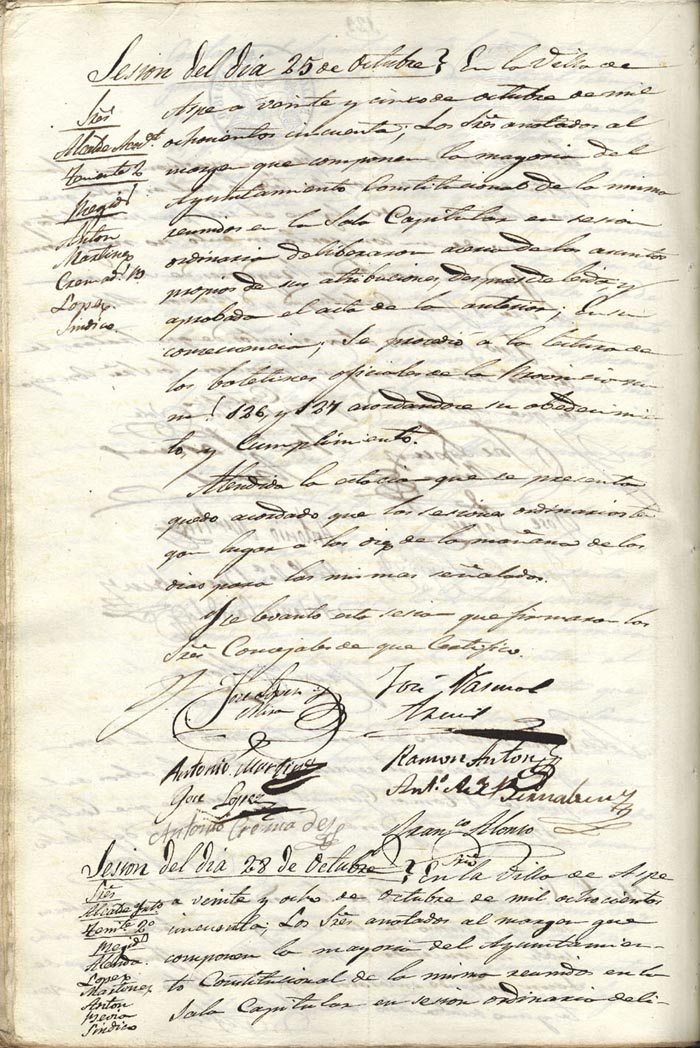 Sesion del dia 25 de Octubre? En la Villa de
Sres
Alcalde Acci.l
Teniente 2º
Regid.s
Anton
Martinez
Cremad.s
Lopez
Sindico
Aspe a veinte y cinco de octubre de mil
ochocientos cincuenta; Los Sres anotados al
margen que componen la mayoria del
Ayuntamiento Constitucional de la misma
reunidos en la Sala Capitular en sesion
ordinaria deliberaron acerca de los asuntos
propios de sus atribuciones, despues de leida y
aprobada el acta de la anterior; En su
consecuencia; Se procedió a la lectura de
los boletines oficiales de la Provincia nu
m.s 126, y 127 acordandose su obedecimien
to, y Cumplimiento.
Atendida la estacion que se presenta
quedó acordado que las sesiones ordinarias ten
gan lugar a las diez de la mañana de los
dias para las mismas señalados.
Y se levantó esta sesion que firmaron los
Sres Concejales de que Certifico.
Jose Lopez y
Mira
José Pascual
Antonio Martinez
Ramon Anton
Jose Lopez
Ant.o
Antonio Cremades
Fran.co Alonso
Srio
Sesion del dia 28 de Octubre? En la Villa de Aspe
Sres
Alcalde
Tente 2º
Regid.s
Lopez
Martinez
Anton
Sindico
a veinte y ocho de octubre de mil ochocientos
cincuenta; Los Sres anotados al margen que
componen la mayoria del Ayuntamien-
to Constitucional de la misma reunidos en la
Sala Capitular en sesion ordinaria deli-